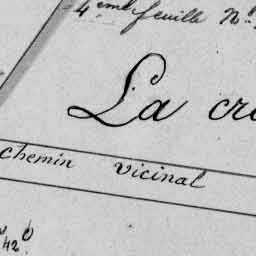 4eme feuille No.
La cr
chemin vicinal
42